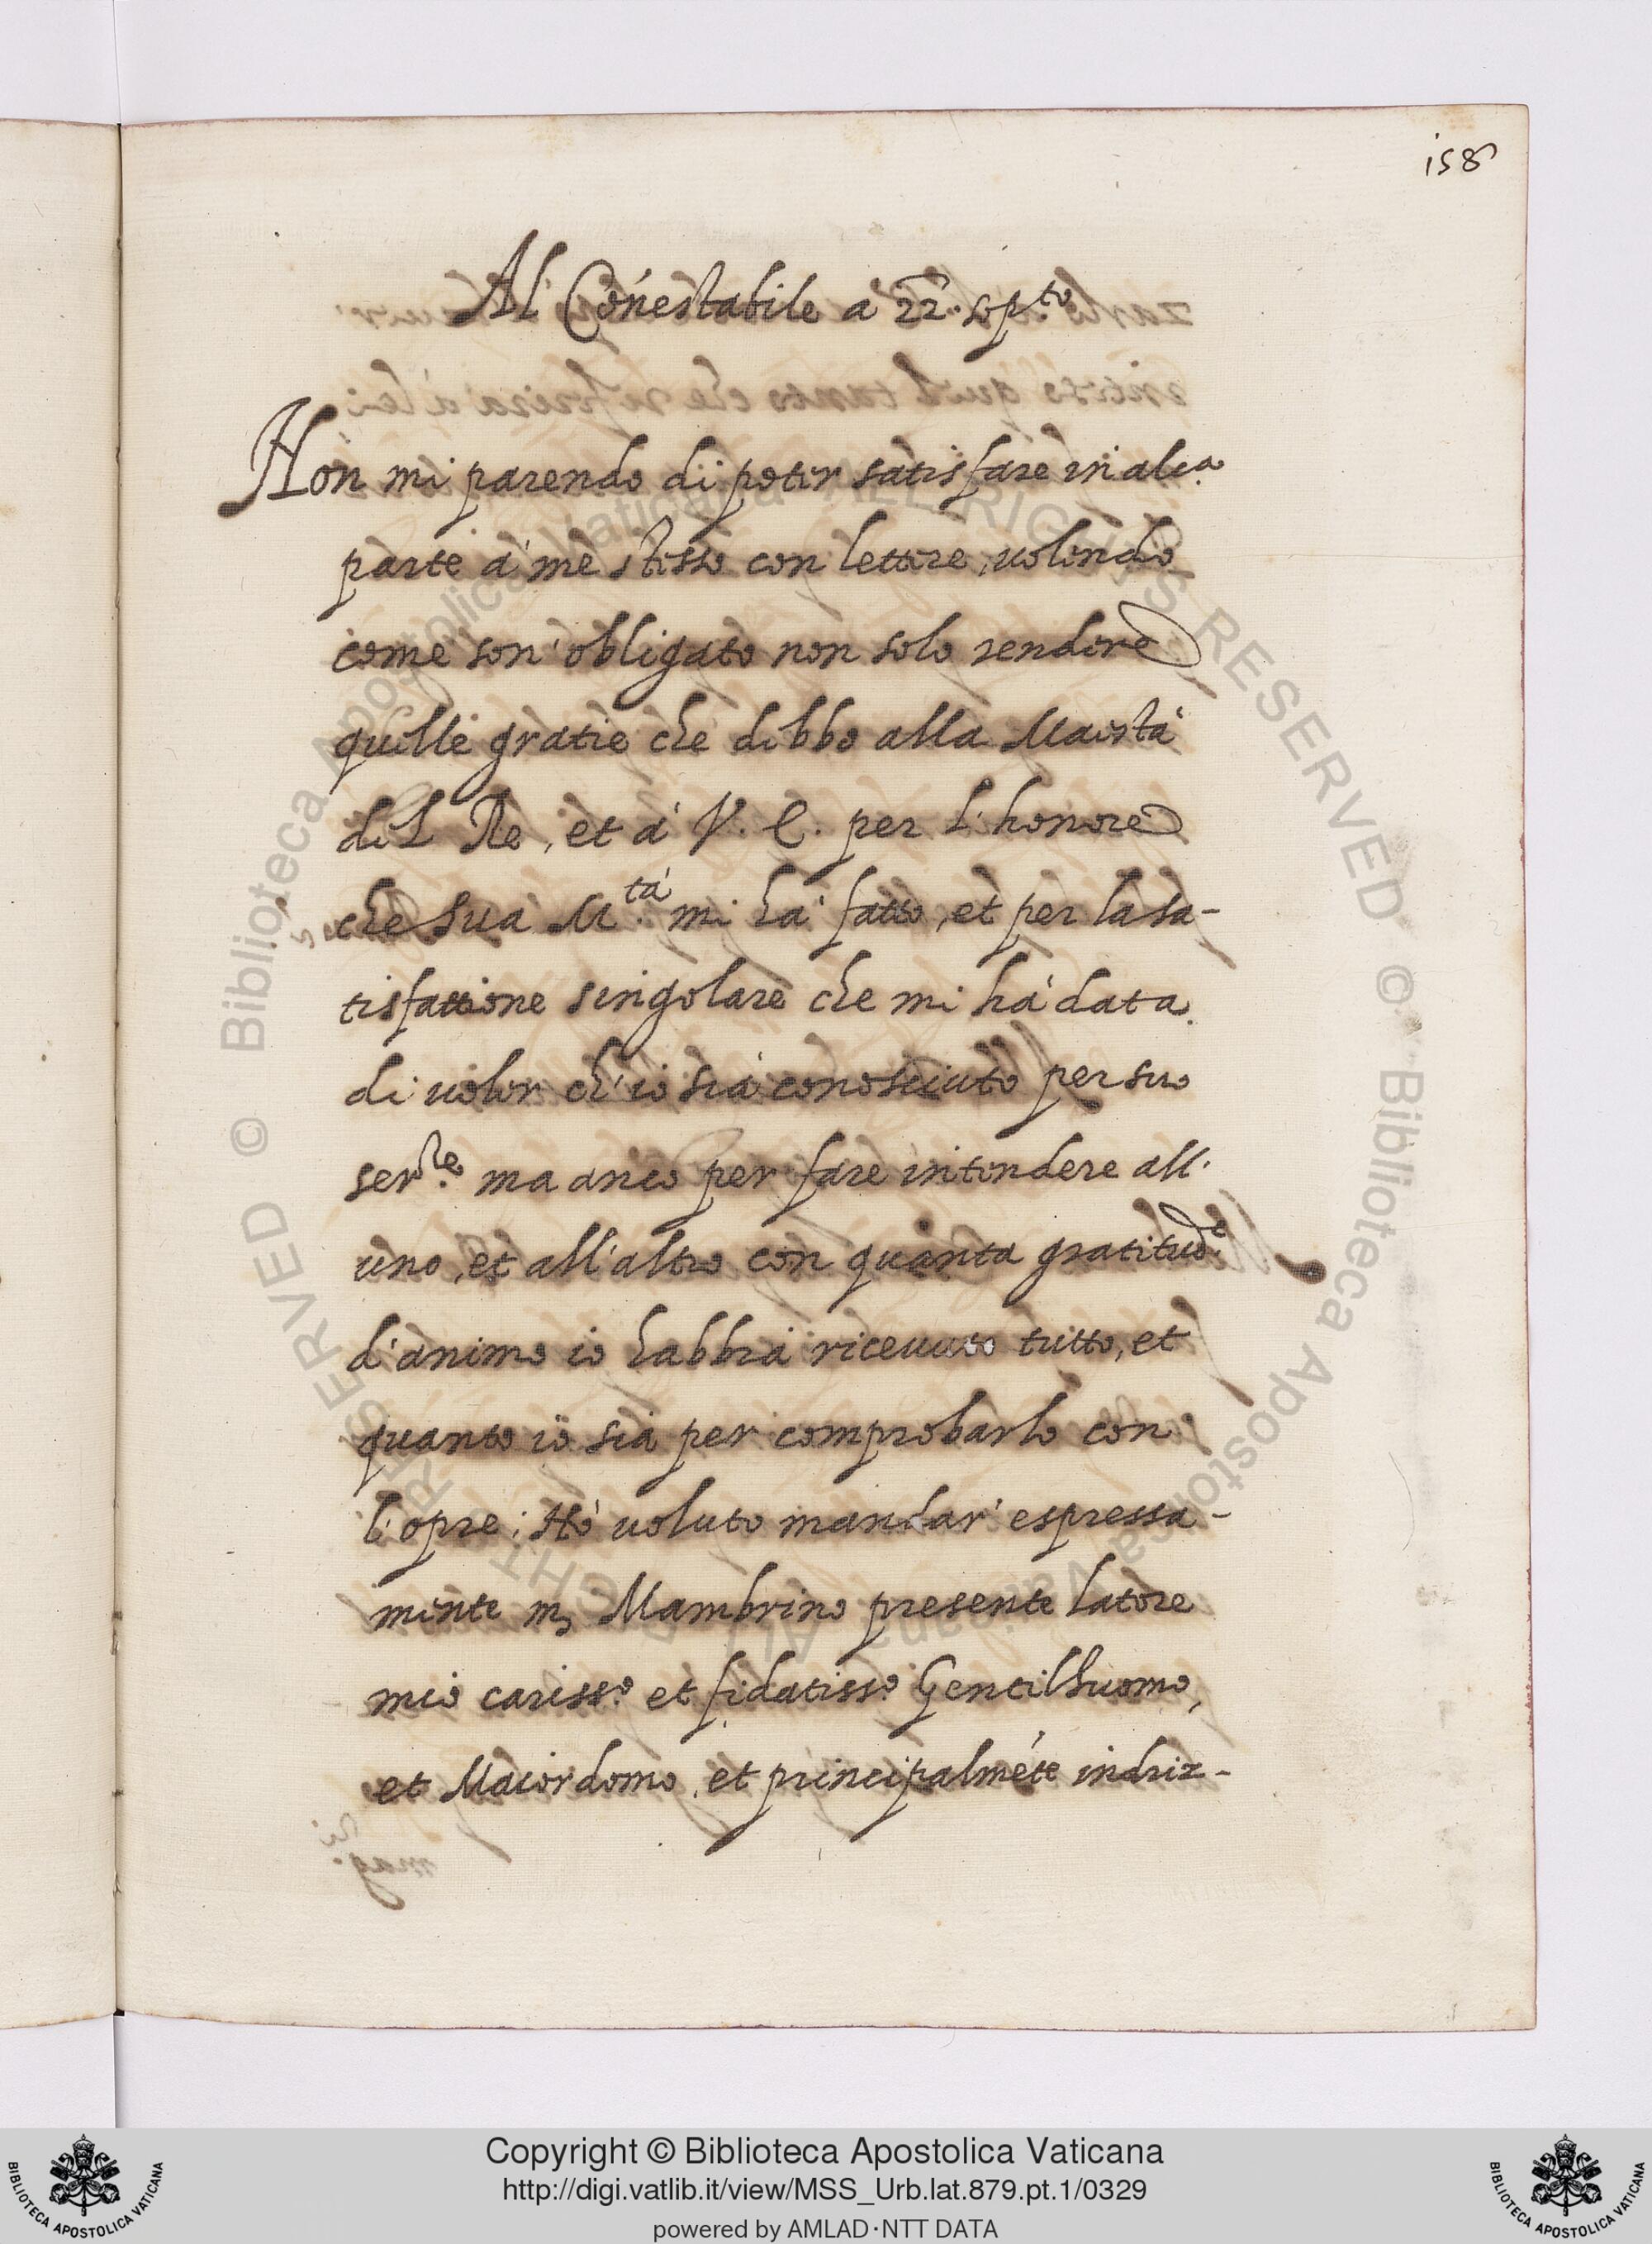 158
Al Cónestabile a 22. sep.to
Non mi parendo di poter satisfare in alc.a
parte à me stesso con lettere, uolendo
come son' obligato non solo rendere
quelle gratie che debbo alla Maestà
del Re, et à V. E. per l'honore
che sua M.tà mi ha' fatto, et per la sa-
tisfattione singolare che mi hà data
di uoler ch'io sia conosciuto per suo
ser.le ma anco per fare intendere all'
uno, et all'altro con quanta gratitud.e
d'animo io habbia riceuuto tutto, et
quanto io sia per comprobarlo con
l'opre; Hò uoluto mandar' espressa-
mente m, Mambrino presente latore
mio cariss.o et fidatiss.o Gentilhuomo,
et Maiordomo, et principalméte indriz-
© Biblioteca Apostolica Vaticana ALL RIGHTS RESERVED
© Biblioteca Apostolica Vaticana ALL RIGHTS RESERVED
BIBLIOTECA APOSTOLICA VATICANA
Copyright © Biblioteca Apostolica Vaticana
http://digi.vatlib.it/view/MSS_Urb.lat.879.pt.1/0329
powered by AMLAD·NTT DATA
BIBLIOTECA APOSTOLICA VATICANA